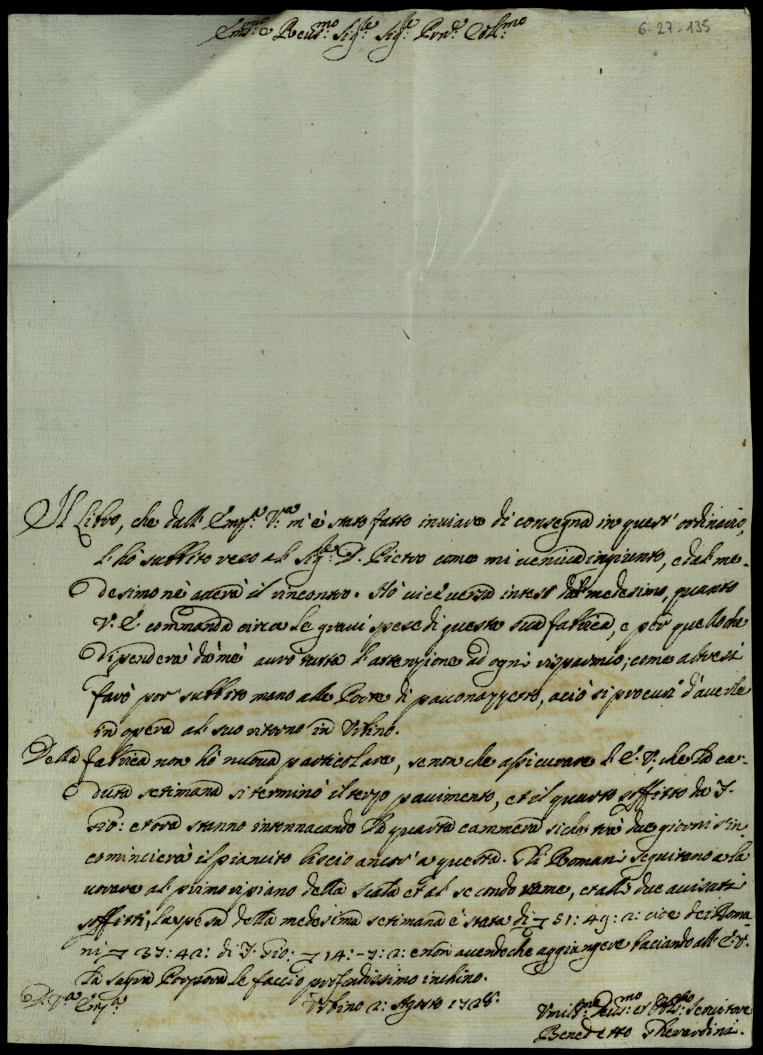 Em.mo e Reu.mo Sig.re Sig.re Pron.e Col.mo
6-27-135
Il Libro, che dall' Em.a V.ra m'è stato fatto inviare di consegna in quest' ordinario,
l'hò subbito reso al Sig.r D. Pietro come mi veniva ingiunto, e dal me-
desimo nè averà il rincontro. Hò vice versa inteso dal medesimo, quanto
V. E. commanda circa le gravi spese di questa sua fabrica, e per quello che
dipenderà da mè aurò tutta l'attenzione ad ogni risparmio; come altresì
farò por subbito mano alle Porte di pauonazzetto, aciò si procuri d'auerle
in opera al suo ritorno in Urbino.
Della fabrica non hò nuova particolare, se non che assicurare l'E. V., che la ca-
duta settimana si terminò il terzo pavimento, et il quarto soffitto da
Gio: et ora stanno intonnacando la quarta cammera sicche trà due giorni s'in
comincierà il piancito liscio ancor' a questa. Gli Romani seguitono a la
uorare al primo ripiano della scala et al secondo rame, et alli due auisati
soffitti, la spesa della medesima settimana è stata di 51:49:2: cioè dei Roma
ni 37:42: di Gio: 14:-7:2: e non auendo che aggiungere baciando all' E. V.
la sagra Porpora le faccio profondissimo inchino.
D. V.ra Em.a
Urbino 2: Agosto 1728.
Umil.mo Deu.mo et Obl.mo Seruitore
Benedetto